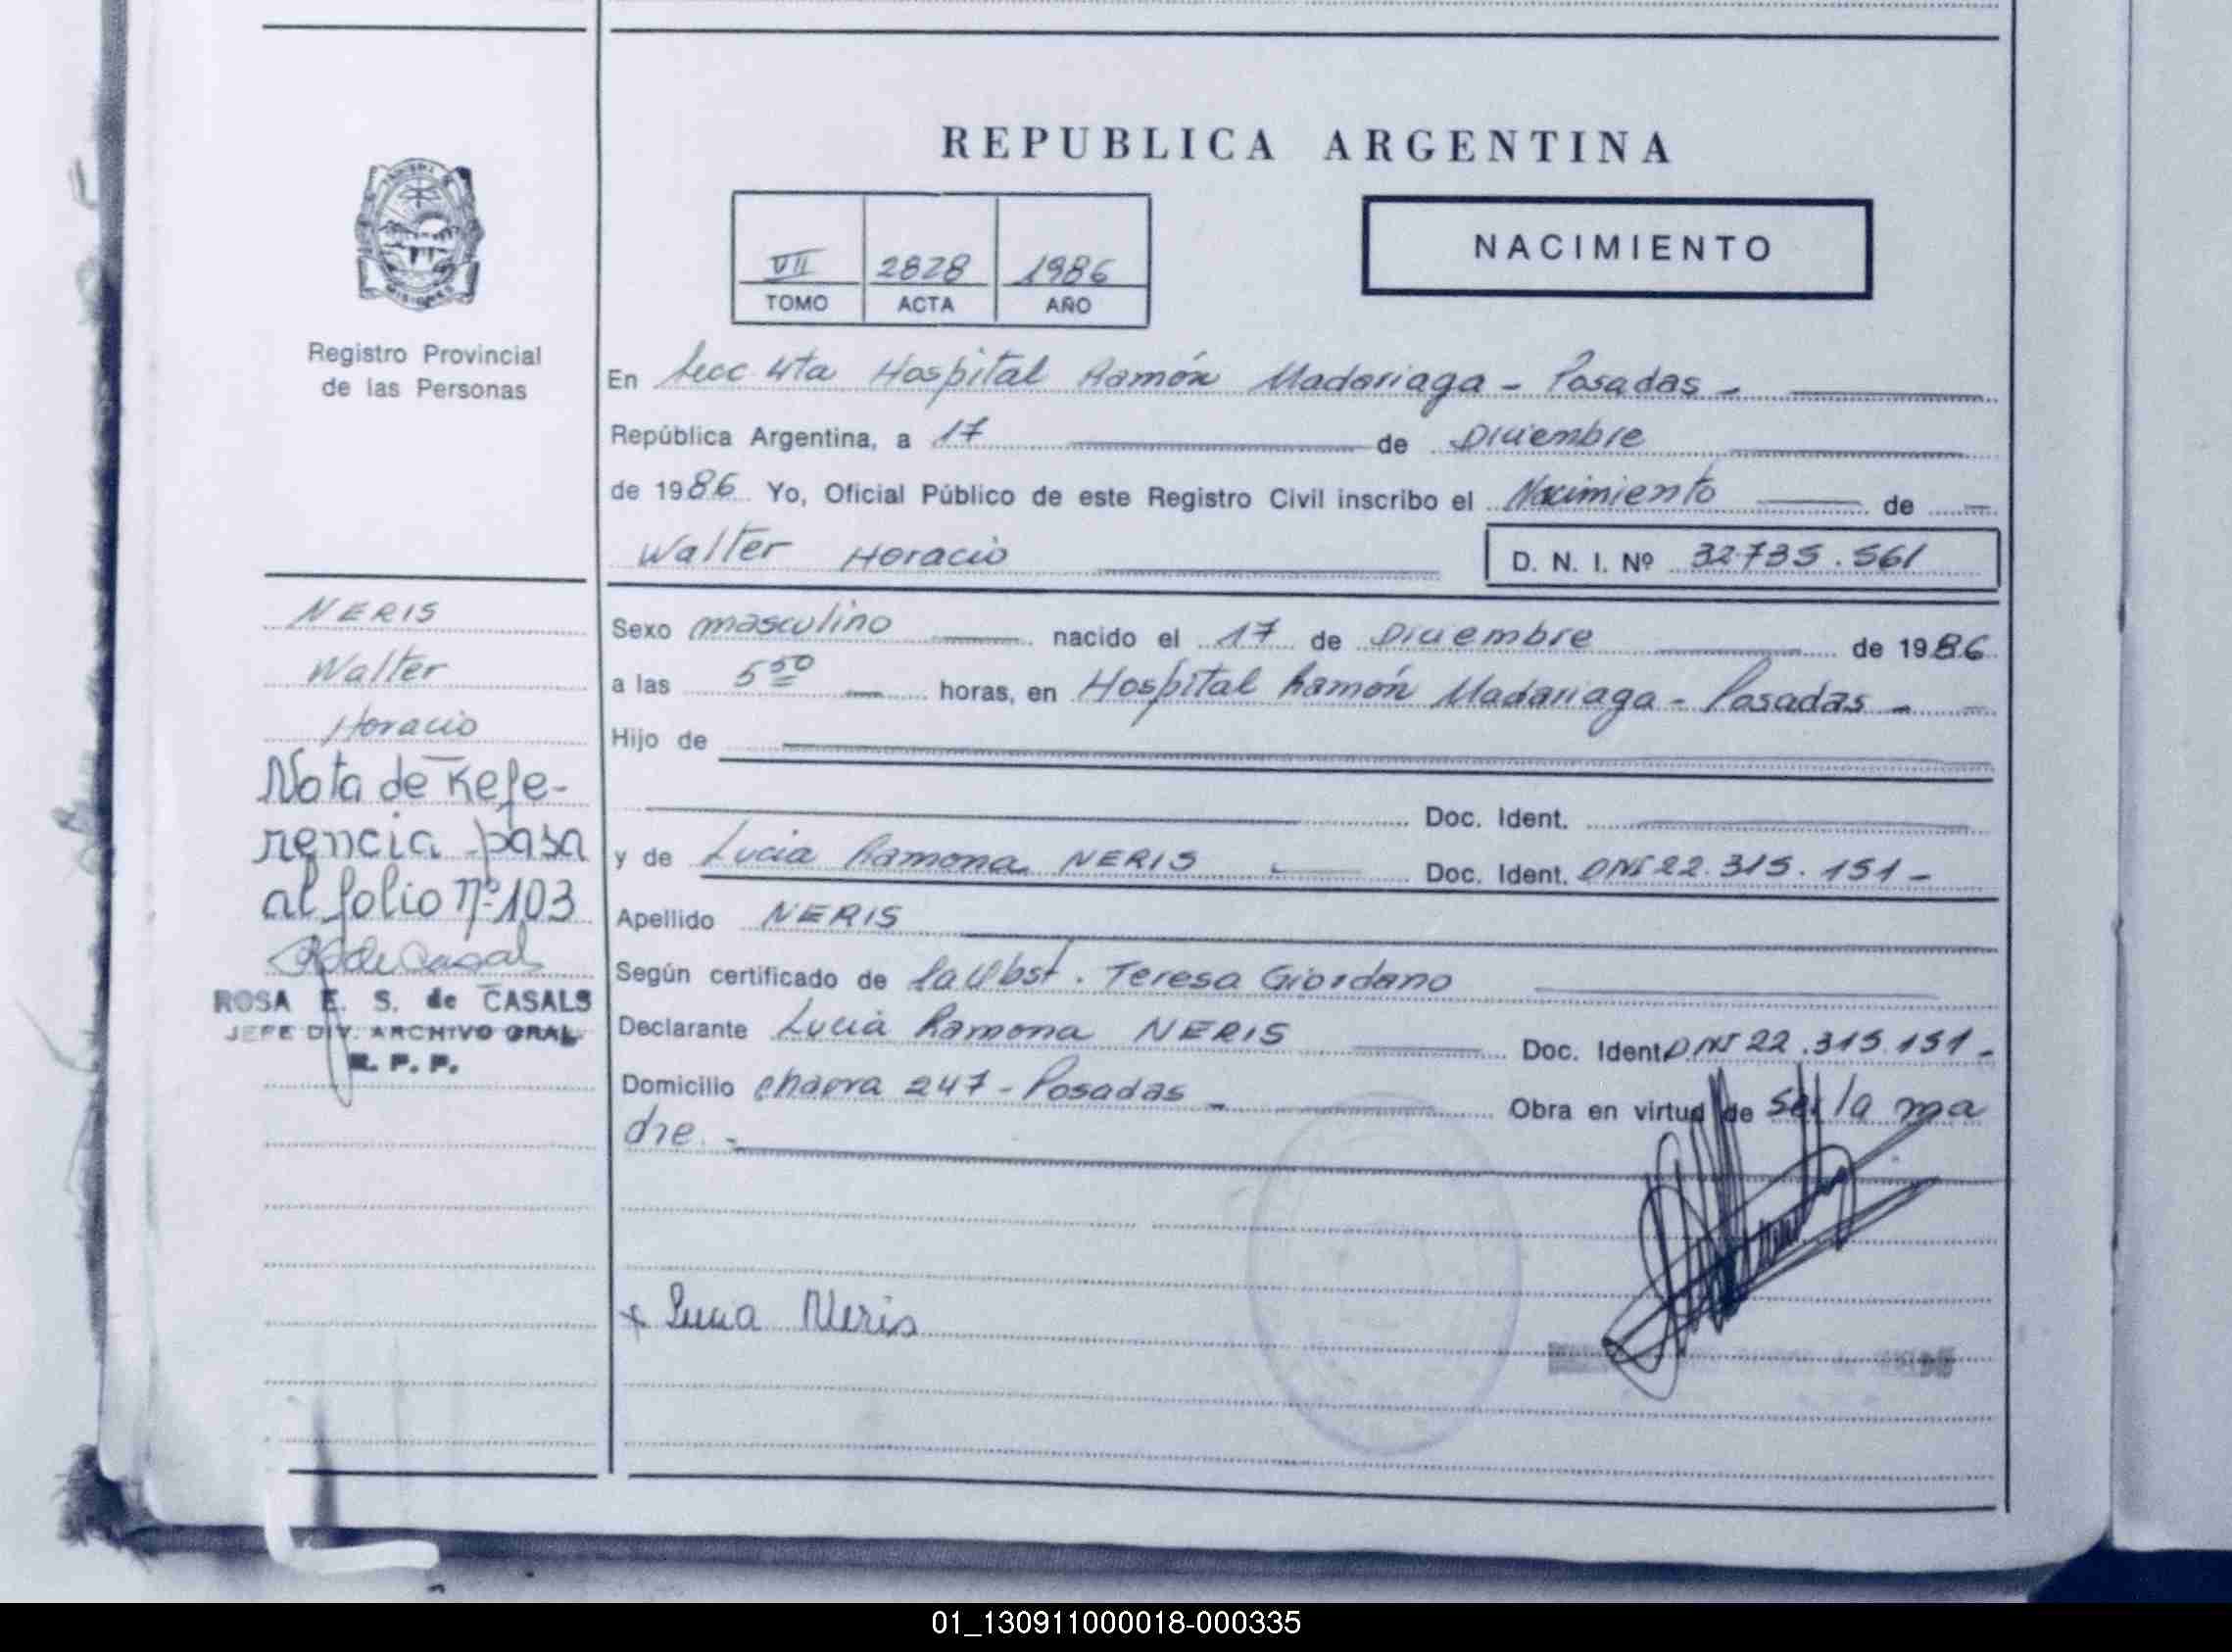 REPUBLICA ARGENTINA
VII 2828 1986
TOMO ACTA AÑO
NACIMIENTO
Registro Provincial
de las Personas
En Secc 4ta Hospital Ramón Madariaga - Posadas -
República Argentina, a 17 de Diciembre
de 1986 Yo, Oficial Público de este Registro Civil inscribo el Nacimiento de
Walter Horacio
D. N. I. Nº 32.735.561
NERIS
Walter
Horacio
Nota de Refe-
rencia pasa
al folio nº 103
R de Casals
ROSA E. S. de CASALS
JEFE DIV. ARCHIVO GRAL.
R. P. P.
Sexo masculino nacido el 17 de Diciembre de 1986
a las 5 50 horas, en Hospital Ramón Madariaga - Posadas -
Hijo de
Doc. Ident.
y de Lucia Ramona NERIS Doc. Ident. DNI 22.315.151 -
Apellido NERIS
Según certificado de la Obst. Teresa Giordano
Declarante Lucia Ramona NERIS Doc. Ident. DNI 22.315.151 -
Domicilio chacra 247 - Posadas - Obra en virtud de ser la ma
dre. -
x Lucia Neris
01_130911000018-000335